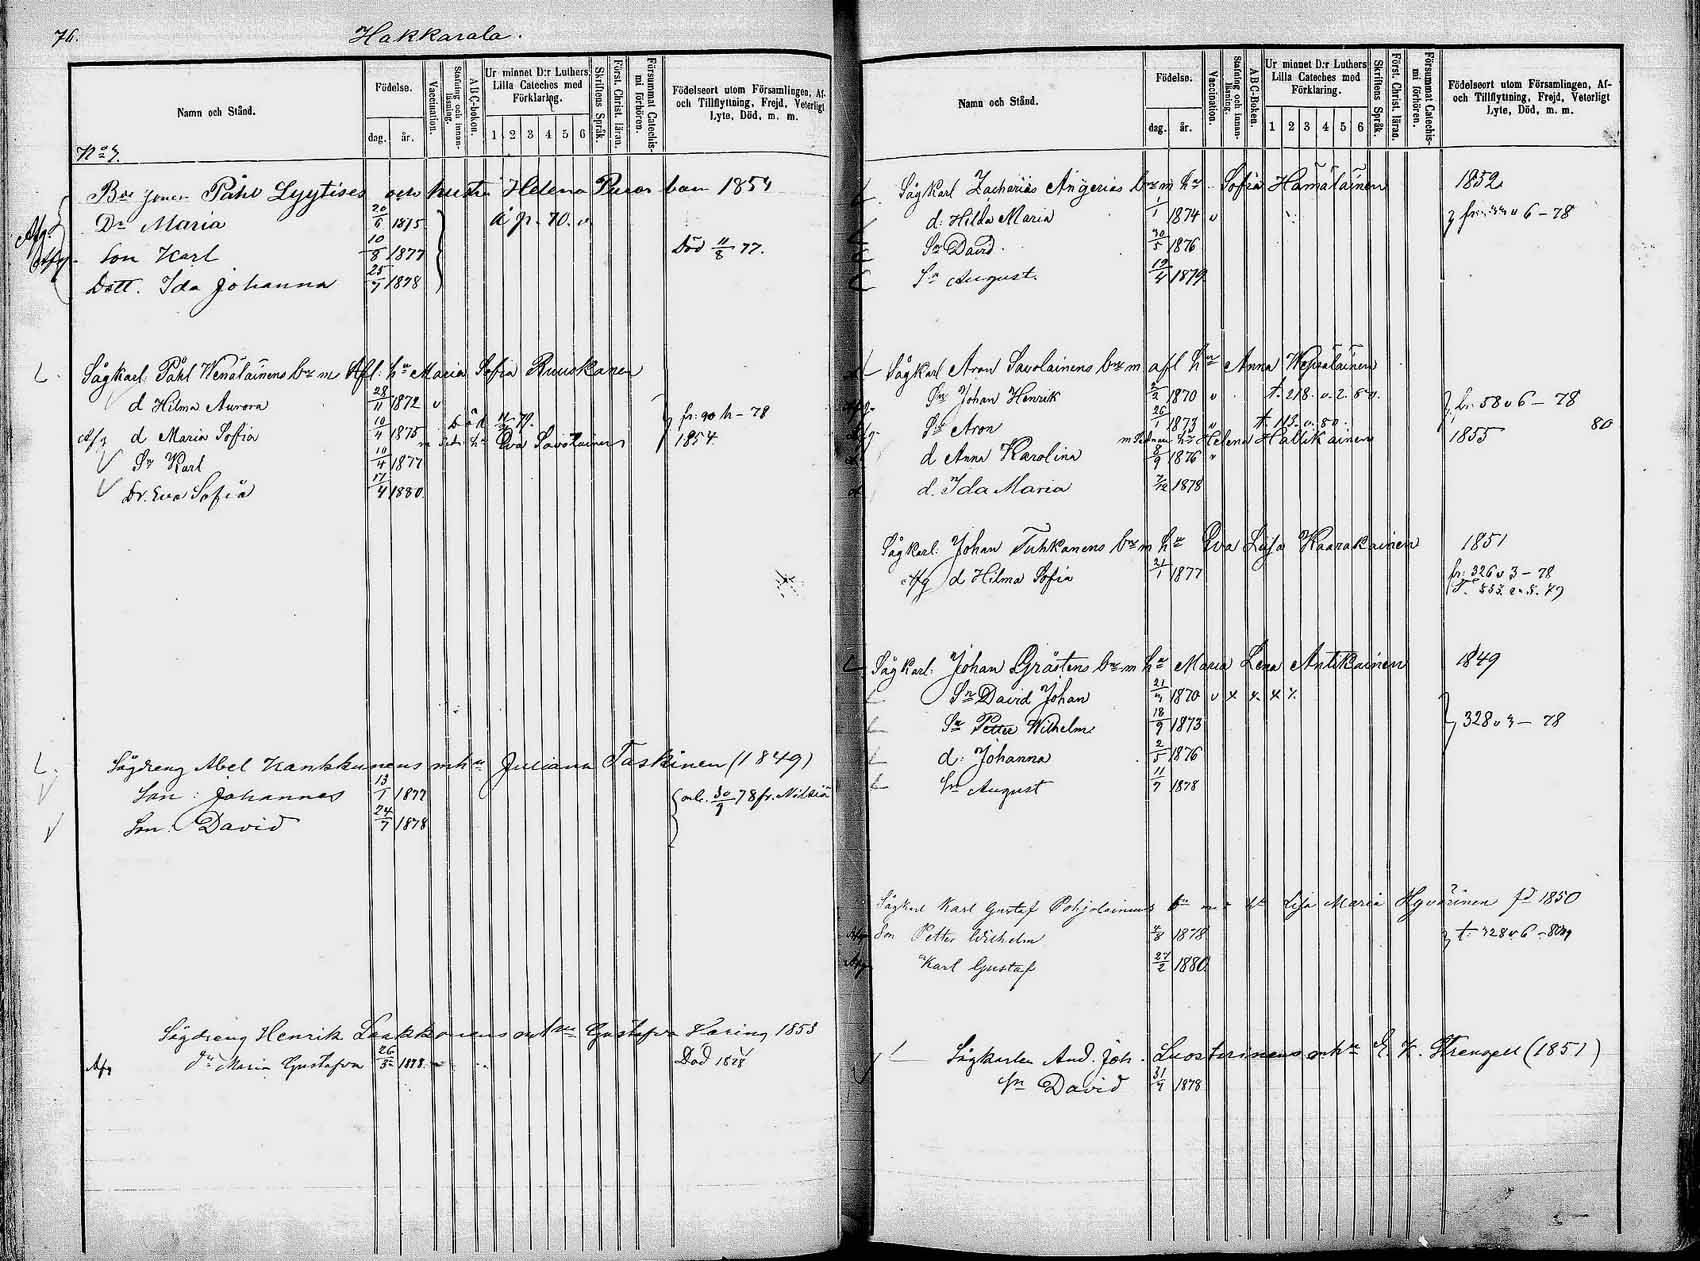 76.
Hakkarala.
Namn och Stånd.
Födelse.
dag. år.
Vaccination.
Stafning och innanläsning.
A B C-boken.
Ur minnet D:r Luthers Lilla Cateches med Förklaring.
1 2 3 4 5 6
Skriftens Språk.
Först. Christ. läran.
Försummat Catechismi förhören.
Födelseort utom Församlingen, Af- och Tillflyttning, Frejd, Veterligt Lyte, Död, m. m.
No 7.
Påhl Lyytises och hustru Helena barn 1854
Dr Maria 20/6 1875 å p. 70.
Son Karl 10/8 1877 Död 11/8 77.
Dott. Ida Johanna 25/7 1878
Sågkarl. Påhl Wenäläinens br m Afl. hu Maria Sofia Ruuskanen
d Hilma Aurora 28/11 1872 v
fr: 90 h – 78
Afg d Maria Sofia 10/4 1875 hu Eva Savolainen 1854
Sn Karl 10/4 1877
Dr. Eva Sofia 17/4 1880.
Sågdreng Abel Kankkunens mhu Juliana Taskinen (1849)
Son: Johannes 13/1 1877 30/9 78 fr. Nilsiä
Son. David 24/7 1878
Sågdreng Henrik Laakkonens mhu Gustafva Waring 1853
Afg dr Maria Gustafva 26/5 1878 Död 1878
Namn och Stånd.
Födelse.
dag. år.
Vaccination.
Stafning och innanläsning.
A B C-Boken.
Ur minnet D:r Luthers Lilla Cateches med Förklaring.
1 2 3 4 5 6
Skriftens Språk.
Först. Christ. läran.
Försummat Catechismi förhören.
Födelseort utom Församlingen, Af- och Tillflyttning, Frejd, Veterligt Lyte, Död, m. m.
Sågkarl Zacharias Angerias br m hu Sofia Hämäläinen 1852
d: Hilda Maria 1/1 1874 v 6 – 78
Sn David. 30/5 1876
Sn August. 19/4 1879
Sågkarl Aron Savolainens br m afl hu Anna Wepsäläinen
Sn Johan Henrik 2/2 1870 v t. 218. v. 2. 80.
fr: 58 v 6 – 78
Sn Aron 26/1 1873 v t. 113. v. 80. 80
hu Helena Hallikainen 1855
d Anna Karolina 8/9 1876 v
d. Ida Maria 7/12 1878
Sågkarl: Johan Tuhkanens br m hu Eva Lisa Kaarakainen 1851
Afg d Hilma Sofia 21/1 1877 fr: 326 v 3 – 78
79
Sågkarl: Johan Gråstens br m hu Maria Lena Antikainen 1849
Sn David Johan 1870 v x x x
Sn Petter Wilhelm 18/9 1873 328 v – 78
d: Johanna 2/5 1876
Sn August 11/7 1878
Sågkarl Karl Gustaf Pohjolainens hu Lisa Maria Hyvärinen fd 1850
Afg Son Petter Wilhelm 1878 t. 328 v 6 –
Afg Karl Gustaf 27/2 1880.
Sågkarlen And. Joh. Luostarinens mhu E. K. Strengell (1851)
Sn David 31/9 1878